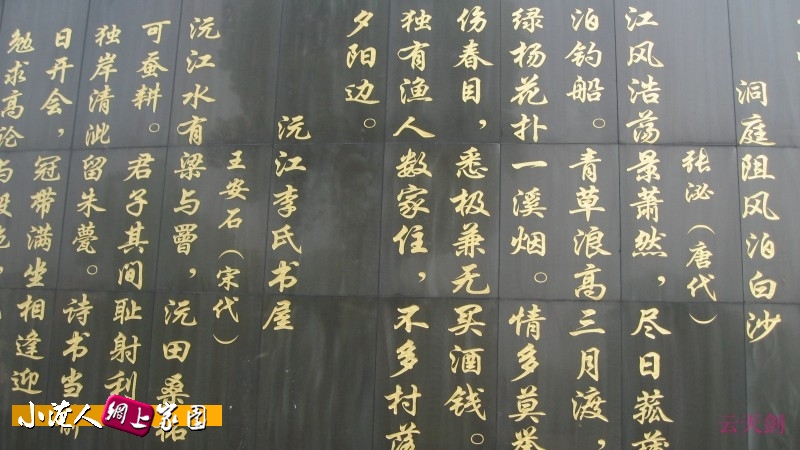 洞庭阻风泊白沙
张泌（唐代）
江风浩荡景萧然，尽日菰
泊钓船。青草浪高三月渡，
绿杨花扑一溪烟。情多莫举
伤春目，悉极兼无买酒钱。
独有渔人数家住，不多村落
夕阳边。
沅江李氏书屋
王安石（宋代）
沅江水有梁与罾，沅田桑柘
可蚕耕。君子其间耻射利
独岸清泚留朱甍。诗书当
日开会，冠带满坐相逢迎
勉求高论与
小淹人網上家园